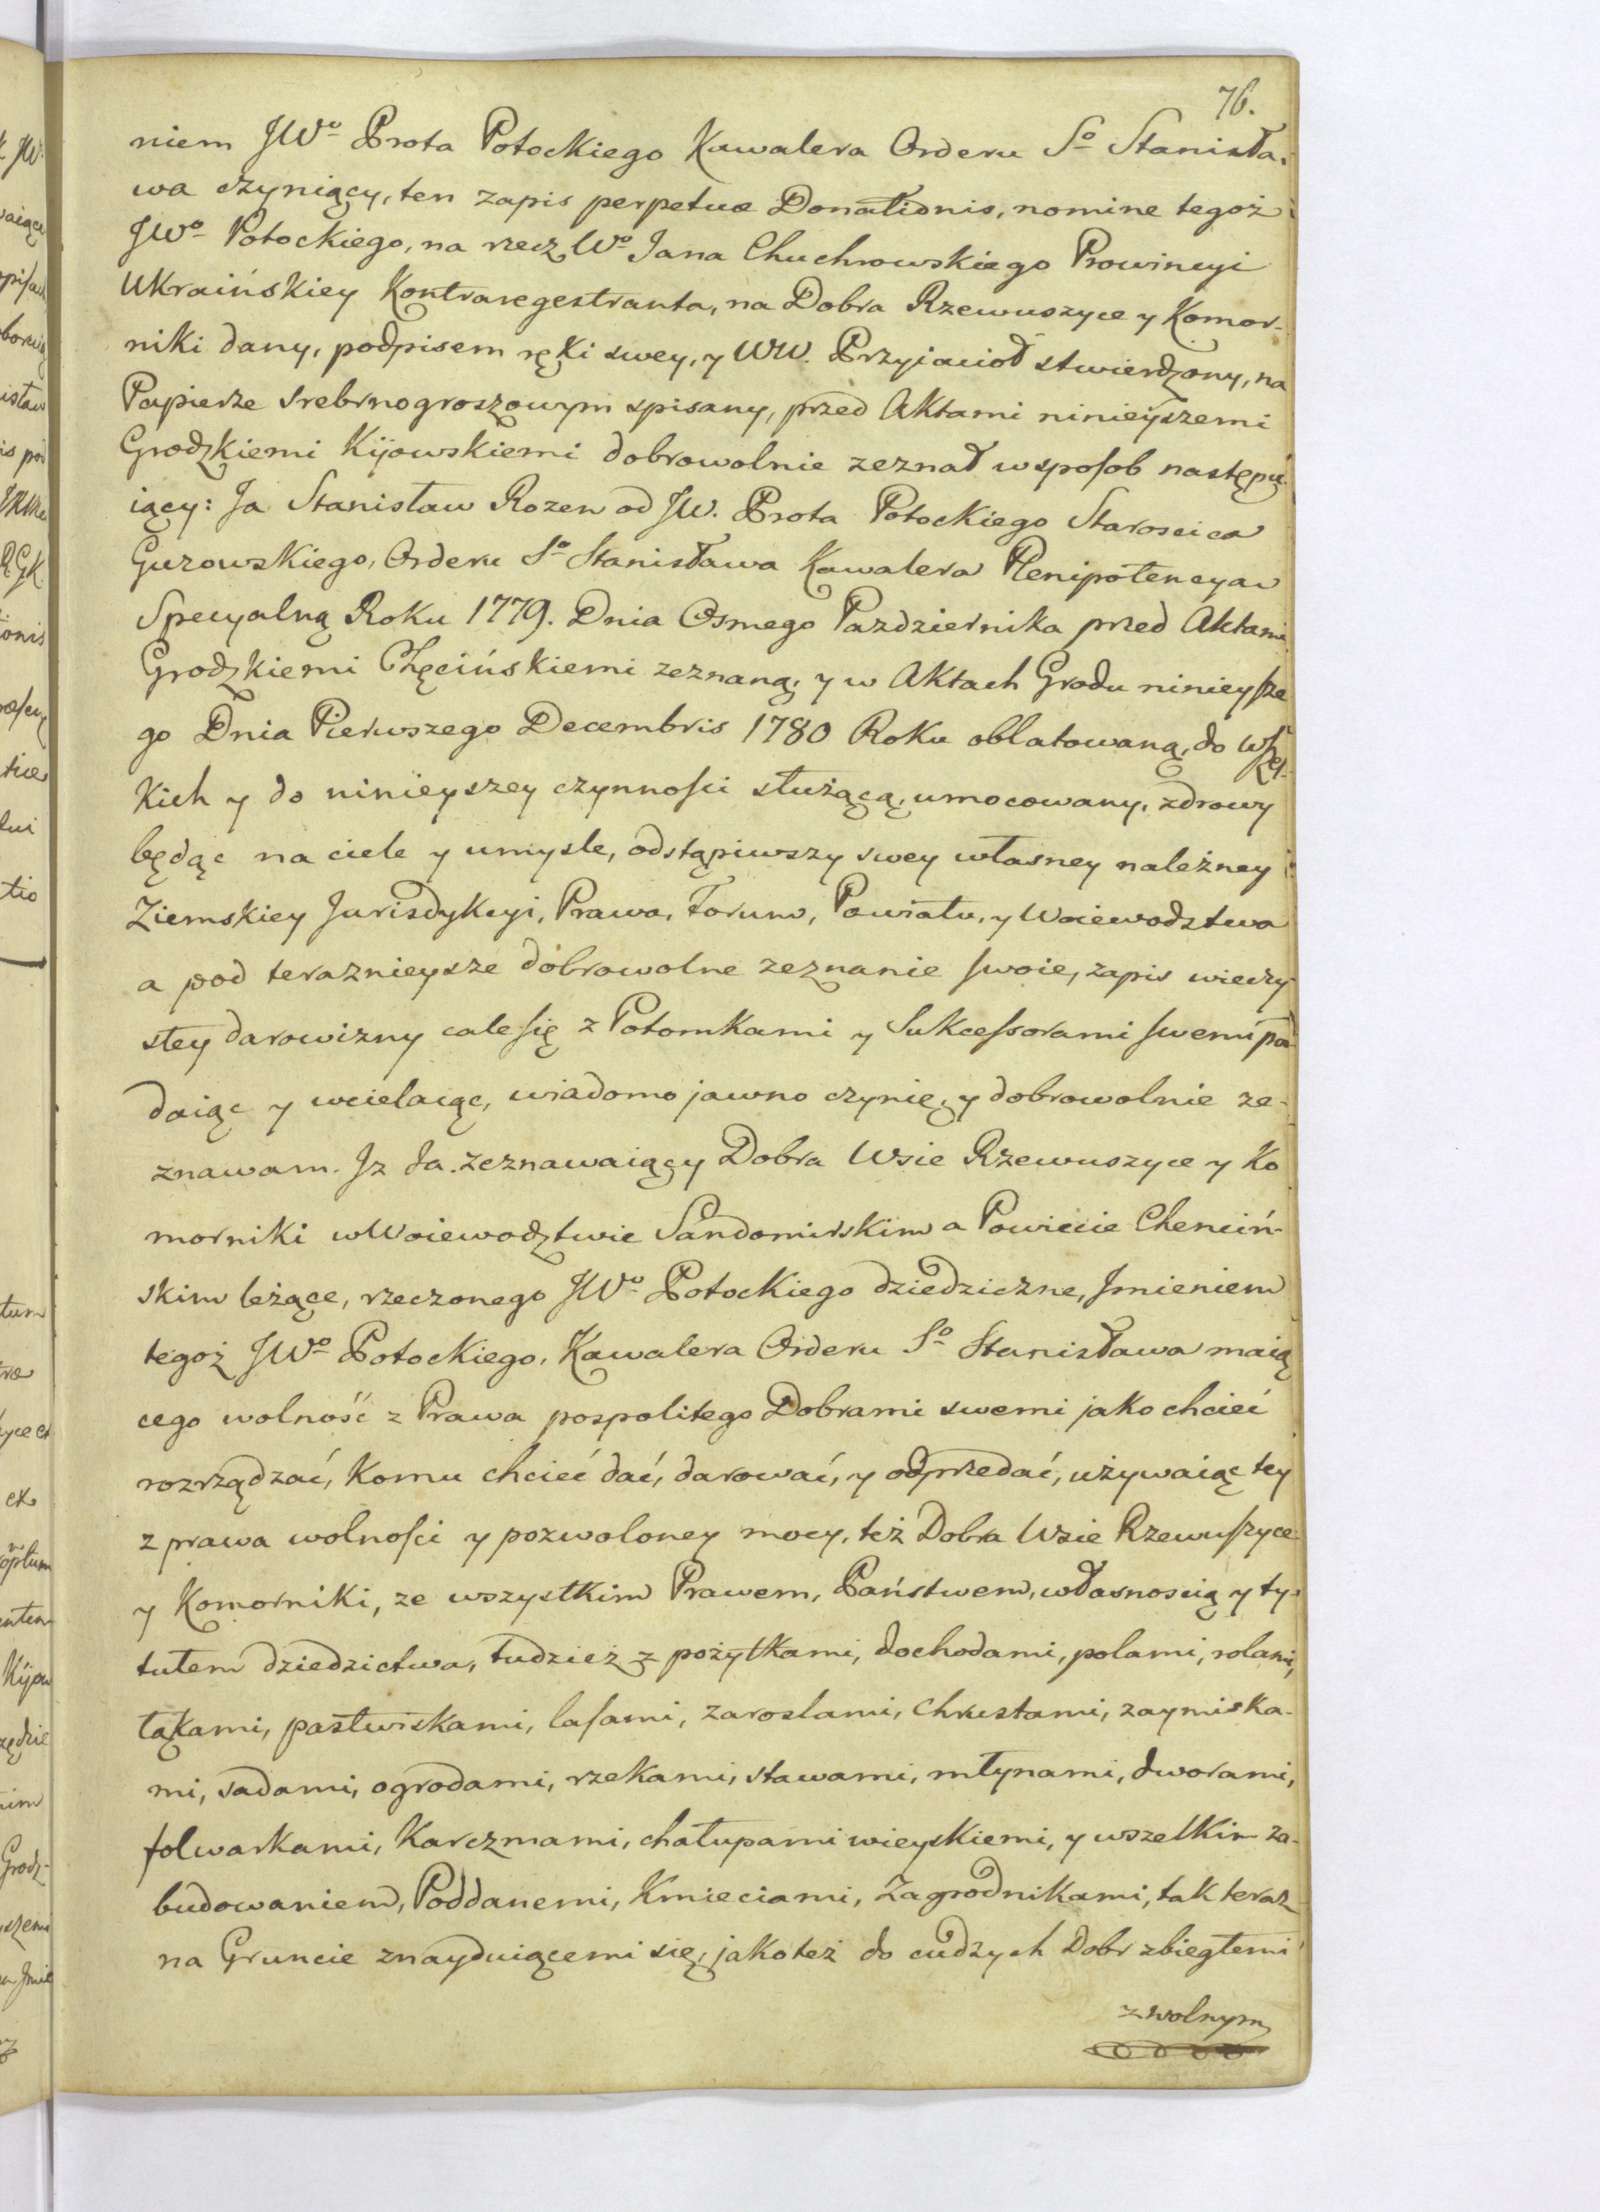 76.
niem JWo Prota Potockiego Kawalera Orderu So Stanisła-
wa czyniący, ten zapis perpetuæ Donationis, nomine tegoż
JWo Potockiego, na rzecz Wo Jana Chuchrowskiego Prowincyi
Ukraińskiey Kontraregestranta, na Dobra Rzewuszyce y Komor-
niki dany, podpisem ręki swey, y WW. Przyiacioł stwierdzony, na
Papierze srebrnogroszowym spisany, przed Aktami ninieyszemi
Grodzkiemi Kijowskiemi dobrowolnie zeznał w sposob następu-
iący: Ja Stanisław Rozen od JW. Prota Potockiego Starościca
Guzowskiego, Orderu So Stanisława Kawalera Plenipotencyą
Specyalną Roku 1779. Dnia Osmego Pazdziernika przed Aktami
Grodzkiemi Chęcińskiemi zeznaną, y w Aktach Grodu ninieysze
go Dnia Pierwszego Decembris 1780 Roku oblatowaną, do wszel-
kich y do ninieyszey czynności służącą, umocowany, zdrowy
będąc na ciele y umysle, odstąpiwszy swey własney należney
Ziemskiey Jurisdykcyi, Prawa, Forum, Powiatu, y Woiewodztwa
a pod teraznieysze dobrowolne zeznanie swoie, zapis wieczy
stey darowizny cale się z Potomkami y Sukcessorami swemi pod
daiąc y wcielaiąc, wiadomo jawno czynię, y dobrowolnie ze-
znawam. Iz Ja zeznawaiący Dobra Wsie Rzewuszyce y Ko
morniki w Woiewodztwie Sandomirskim a Powiecie Chenciń-
skim leżące, rzeczonego JWo Potockiego dziedziczne, Jmieniem
tegoż JWo Potockiego, Kawalera Orderu So Stanisława maią
cego wolność z Prawa pospolitego Dobrami swemi jako chcieć
rozrządzać, komu chcieć dać, darować, y odprzedać, używaiąc tey
z prawa wolności y pozwoloney mocy, też Dobra Wsie Rzewuszyce
y Komorniki, ze wszystkim Prawem, Państwem, własnoscią y ty-
tułem dziedzictwa, tudziez z pożytkami, dochodami, polami, rolami,
łąkami, pastwiskami, lasami, zaroslami, chrustami, zaymiska-
mi, sadami, ogrodami, rzekami, stawami, młynami, dworami,
folwarkami, karczmami, chałupami wieyskiemi, y wszelkim za-
budowaniem, Poddanemi, Kmieciami, Zagrodnikami, tak teraz
na Gruncie znayduiącemi się, jako też do cudzych Dobr zbiegłemi
z wolnym